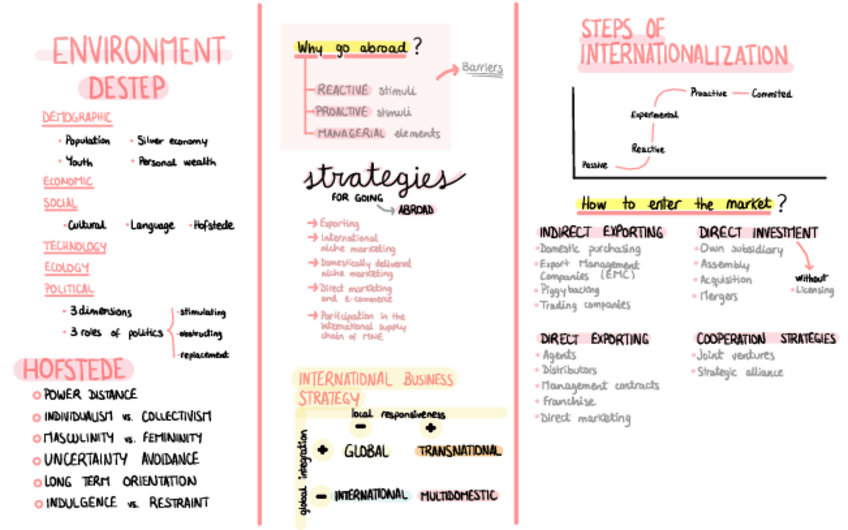 ENVIRONMENT
DESTEP
DEMOGRAPHIC
• Population • Silver economy
• Youth • Personal wealth
ECONOMIC
SOCIAL
• Cultural • Language • Hofstede
TECHNOLOGY
ECOLOGY
POLITICAL
• 3 dimensions
• 3 roles of politics
- stimulating
- obstructing
- replacement
HOFSTEDE
POWER DISTANCE
INDIVIDUALISM vs. COLLECTIVISM
MASCULINITY vs. FEMININITY
UNCERTAINTY AVOIDANCE
LONG TERM ORIENTATION
INDULGENCE vs. RESTRAINT
Why go abroad?
Barriers
REACTIVE stimuli
PROACTIVE stimuli
MANAGERIAL elements
strategies
FOR GOING
ABROAD
→ Exporting
→ International
niche marketing
→ Domestically delivered
niche marketing
→ Direct marketing
and e-commerce
→ Participation in the
international supply
chain of MNE
INTERNATIONAL BUSINESS
STRATEGY
local responsiveness
− +
global integration
+ GLOBAL TRANSNATIONAL
− INTERNATIONAL MULTIDOMESTIC
STEPS OF
INTERNATIONALIZATION
Proactive — Commited
Experimental
Reactive
Passive
How to enter the market?
INDIRECT EXPORTING
• Domestic purchasing
• Export Management
Companies (EMC)
• Piggybacking
• Trading companies
DIRECT INVESTMENT
• Own subsidiary
• Assembly
• Acquisition
• Mergers
without
• Licensing
DIRECT EXPORTING
• Agents
• Distributors
• Management contracts
• Franchise
• Direct marketing
COOPERATION STRATEGIES
• Joint ventures
• Strategic alliance